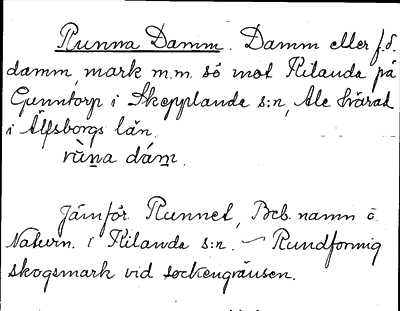 Runna Damm. Damm eller f.d.
damm, mark m.m. sö mot Kilanda på
Gunntorp i Skepplanda s:n, Ale härad
i Älfsborgs län.
rùn̠a dám̠.
Jämför Runnet, Beb. namn o.
Naturn. i Kilanda s:n. — Rundformig
skogsmark vid sockengränsen.